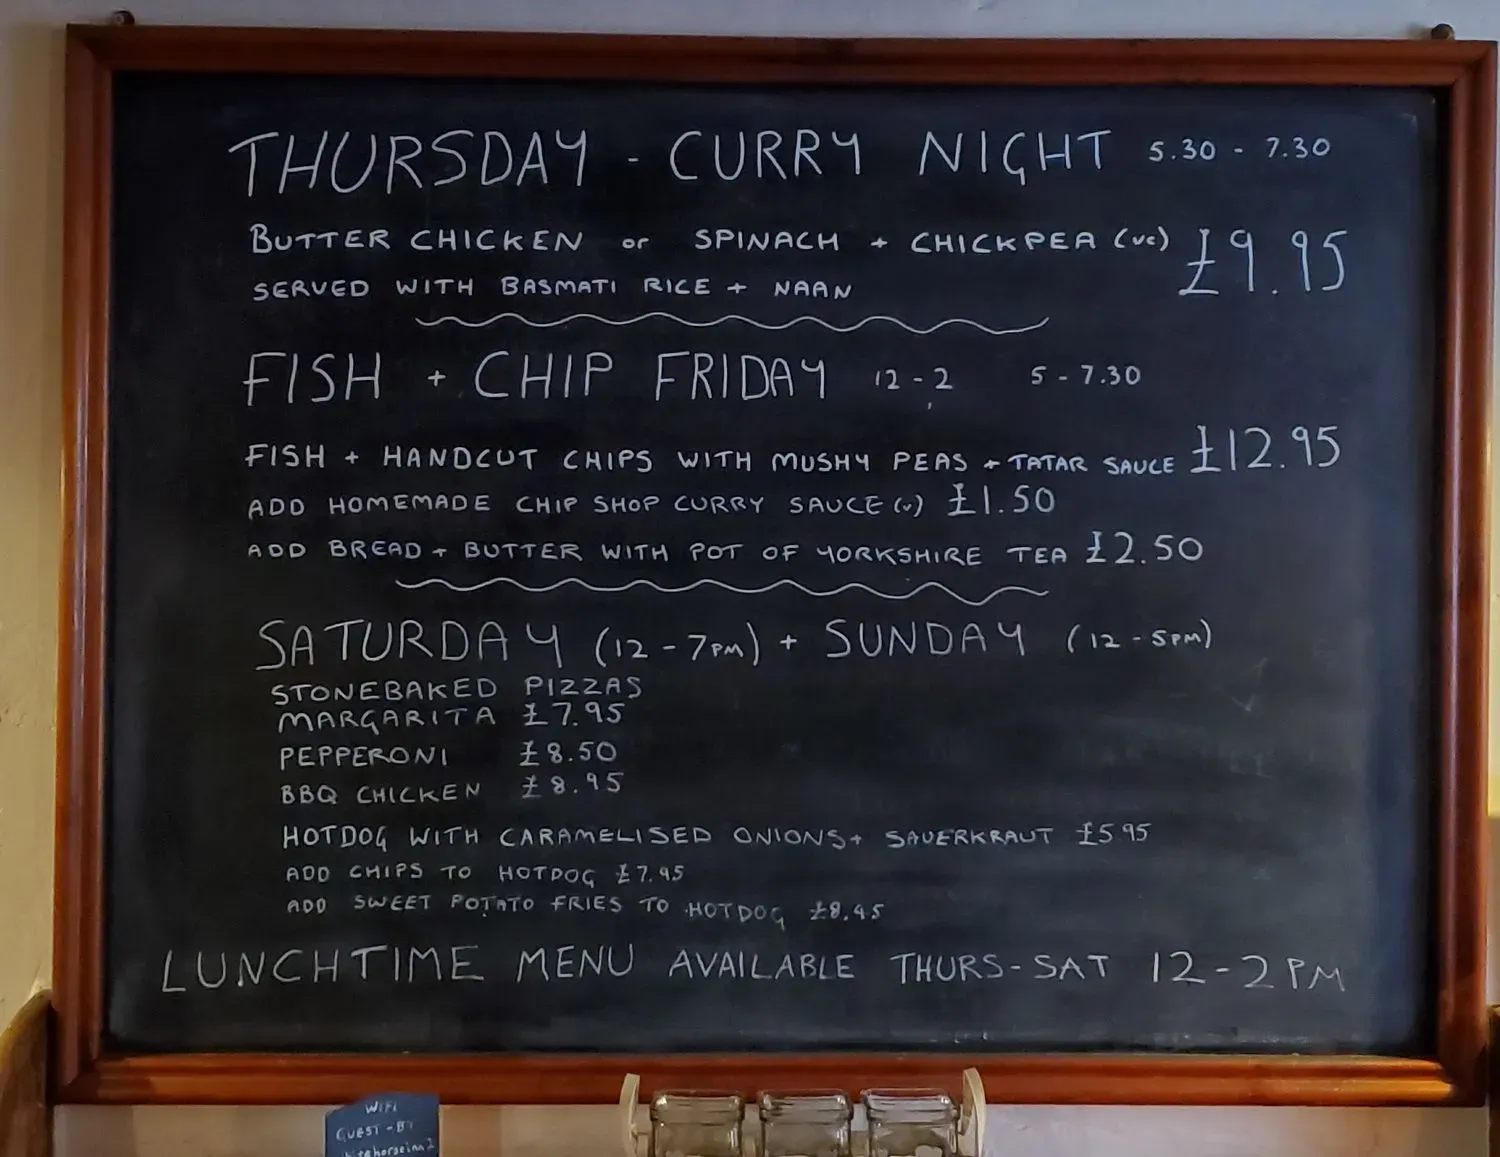 THURSDAY - CURRY NIGHT 5.30 - 7.30
BUTTER CHICKEN or SPINACH + CHICKPEA (VE) £9.95
SERVED WITH BASMATI RICE + NAAN
FISH + CHIP FRIDAY 12-2 5-7.30
FISH + HANDCUT CHIPS WITH MUSHY PEAS + TATAR SAUCE £12.95
ADD HOMEMADE CHIP SHOP CURRY SAUCE (v) £1.50
ADD BREAD + BUTTER WITH POT OF YORKSHIRE TEA £2.50
SATURDAY (12-7PM) + SUNDAY (12-5PM)
STONEBAKED PIZZAS
MARGARITA £7.95
PEPPERONI £8.50
BBQ CHICKEN £8.95
HOTDOG WITH CARAMELISED ONIONS + SAUERKRAUT £5.95
ADD CHIPS TO HOTDOG £7.45
ADD SWEET POTATO FRIES TO HOTDOG £8.45
LUNCHTIME MENU AVAILABLE THURS-SAT 12-2PM
WIFI
GUEST-BT